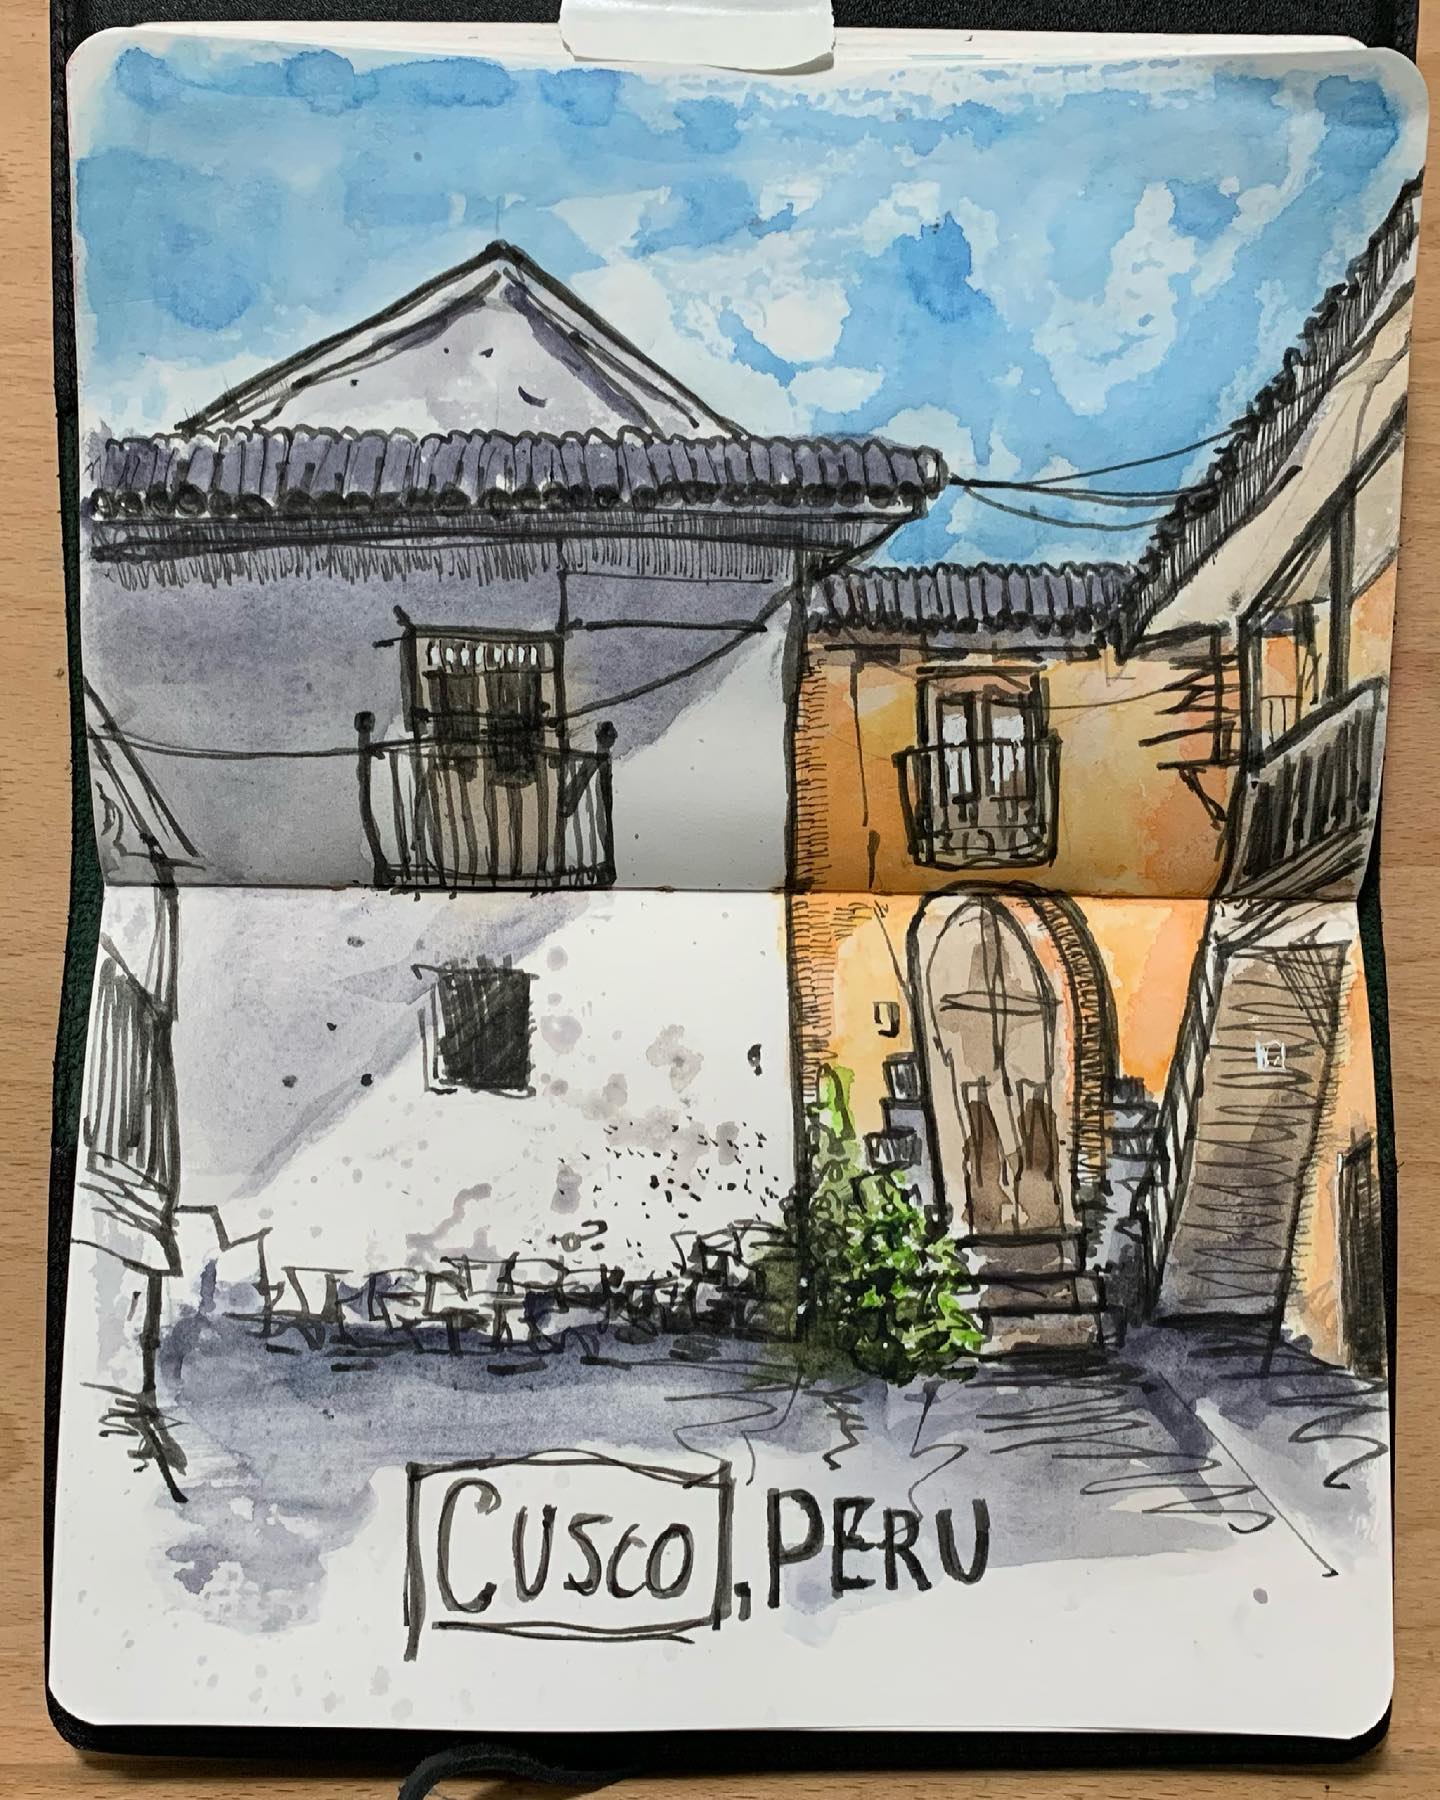 CUSCO, PERU